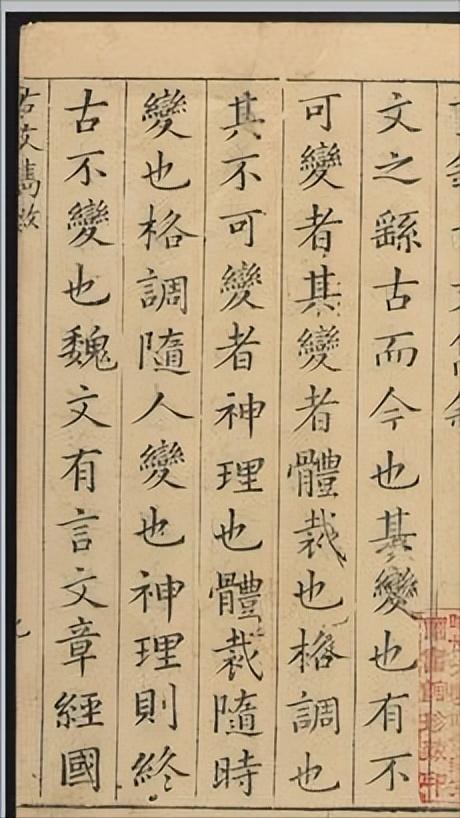 文之繇古而今也其變也有不
可變者其變者體裁也格調也
其不可變者神理也體裁隨時
變也格調隨人變也神理則終
古不變也魏文有言文章經國